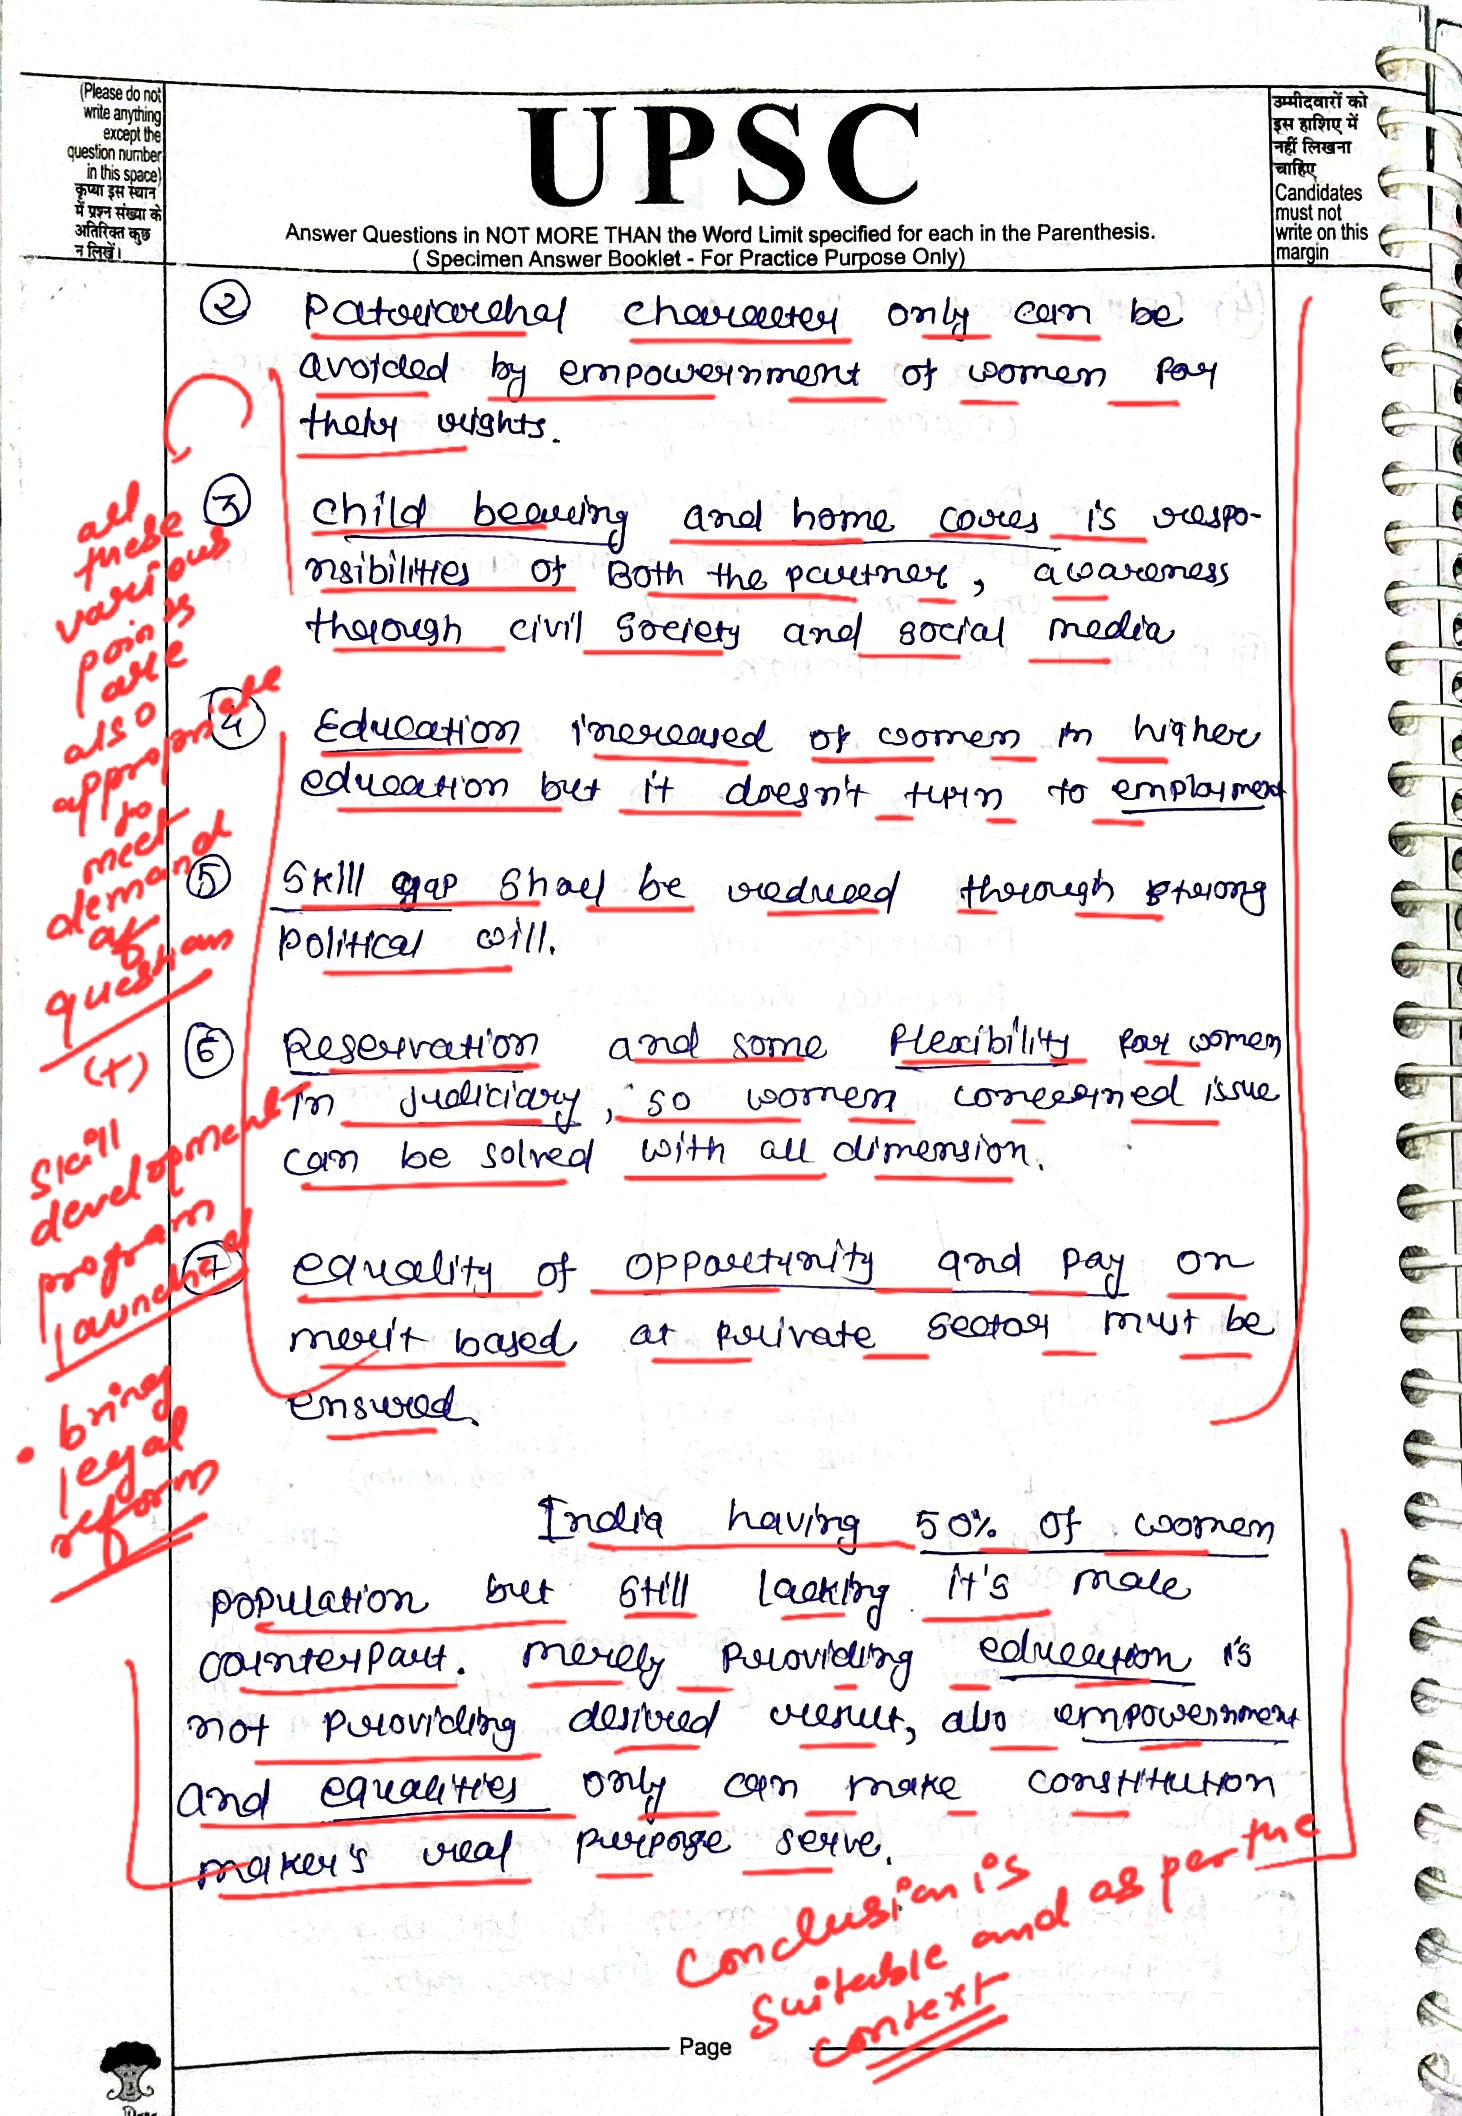 (Please do not
write anything
except the
question number
in this space)
कृप्या इस स्थान
में प्रश्न संख्या के
अतिरिक्त कुछ
न लिखें।
UPSC
Answer Questions in NOT MORE THAN the Word Limit specified for each in the Parenthesis.
( Specimen Answer Booklet - For Practice Purpose Only)
उम्मीदवारों को
इस हाशिए में
नहीं लिखना
चाहिए
Candidates
must not
write on this
margin
② Patriarchal character only can be
avoided by empowernment of women for
their rights.
③ Child bearing and home cares is respo-
nsibilities of Both the partner, awareness
through civil society and social media
④ Education increased of women in higher
education but it doesn't turn to employment
⑤ Skill gap shall be reduced through strong
political will.
⑥ Reservation and some flexibility for women
in judiciary, so women concerned issue
can be solved with all dimension.
⑦ equality of opportunity and pay on
merit based at private sector must be
ensured.
India having 50% of women
population but still lacking it's male
counterpart. Merely providing education is
not providing desired result, also empowernment
and equalities only can make constitution
maker's real purpose serve.
all
these
various
points
are
also
appropriate
to
meet
demand
of
question
(+)
Skill
development
program
launched
• bring
legal
reform
Conclusion is
suitable and as per the
context
Page